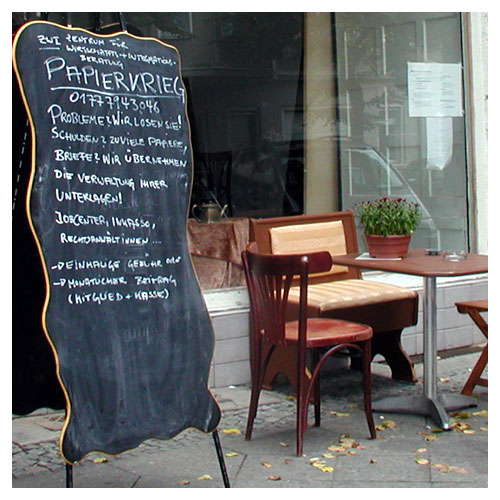 ZWI ZENTRUM FÜR
WIRTSCHAFTS + INTEGRATIONS-
BERATUNG
PAPIERKRIEG
01777943046
PROBLEME? WIR LÖSEN SIE!
SCHULDEN? ZU VIELE PAPIERE,
BRIEFE? WIR ÜBERNEHMEN
DIE VERWALTUNG IHRER
UNTERLAGEN!
JOBCENTER, INKASSO,
RECHTSANWÄLT:INNEN ...
→ EINMALIGE GEBÜHR oder
→ MONATLICHER BEITRAG
(MITGLIED + KASSE)